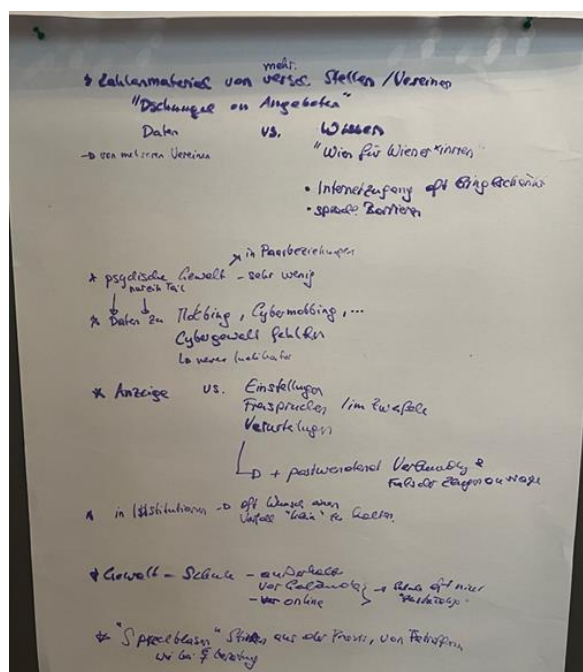 mehr.
* Zahlenmaterial von versch. Stellen / Vereinen
"Dschungel an Angeboten"
Daten vs. Wissen
→ von mehreren Vereinen
"Wien für Wiener*innen"
• Internetzugang oft eingeschränkt
• sprachl. Barrieren
→ in Paarbeziehungen
* psychische Gewalt - sehr wenig
nur ein Teil
* Daten zu Mobbing, Cybermobbing, ...
Cybergewalt fehlen
↳ neuer Indikator
* Anzeige vs. Einstellungen
Freisprüche / im Zweifel
Verurteilungen
↳ + postwendend Verleumdung &
Falsche Zeugenaussage
* in Institutionen → oft Wunsch einen
Vorfall "klein" zu halten.
* Gewalt - Schule - außerhalb
vor
- online
→ Schule oft nicht
* "Sprechblasen" aus der Praxis, von
wie bei